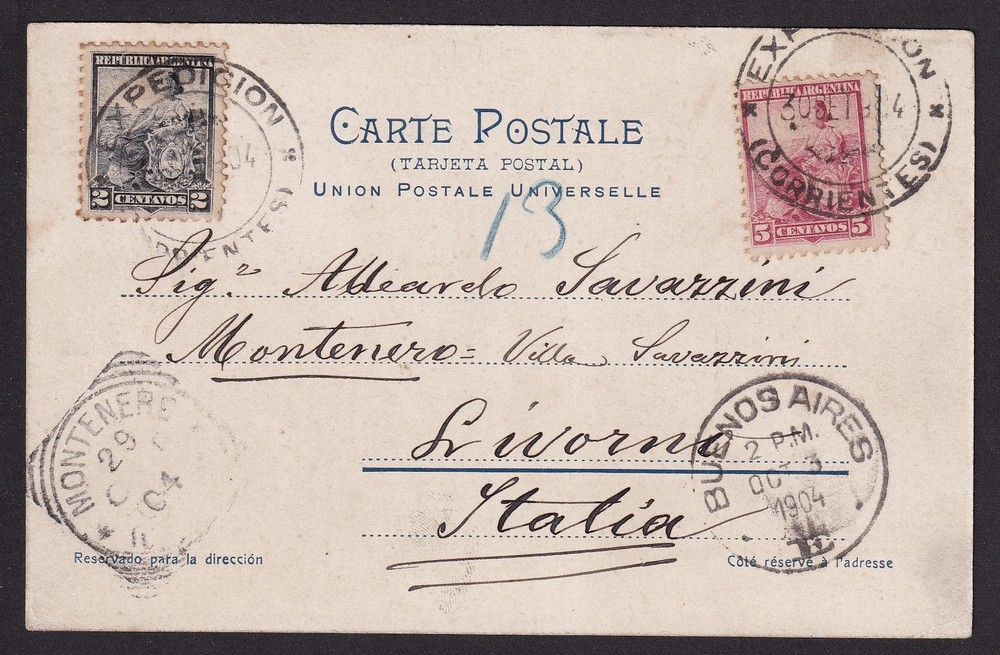 REPÚBLICA ARGENTINA
2 CENTAVOS 2
EXPEDICION
04
CARTE POSTALE
(TARJETA POSTAL)
UNION POSTALE UNIVERSELLE
13
REPUBLICA ARGENTINA
5 CENTAVOS 5
30 SET
(CORRIENTES)
Sig.r Adeardo Savazzini
Montenero = Villa Savazzini
Livorno
Italia
MONTENERE
29
04
BUENOS AIRES
2 P.M.
OCT 3
1904
Reservado para la dirección
Côté réservé à l'adresse